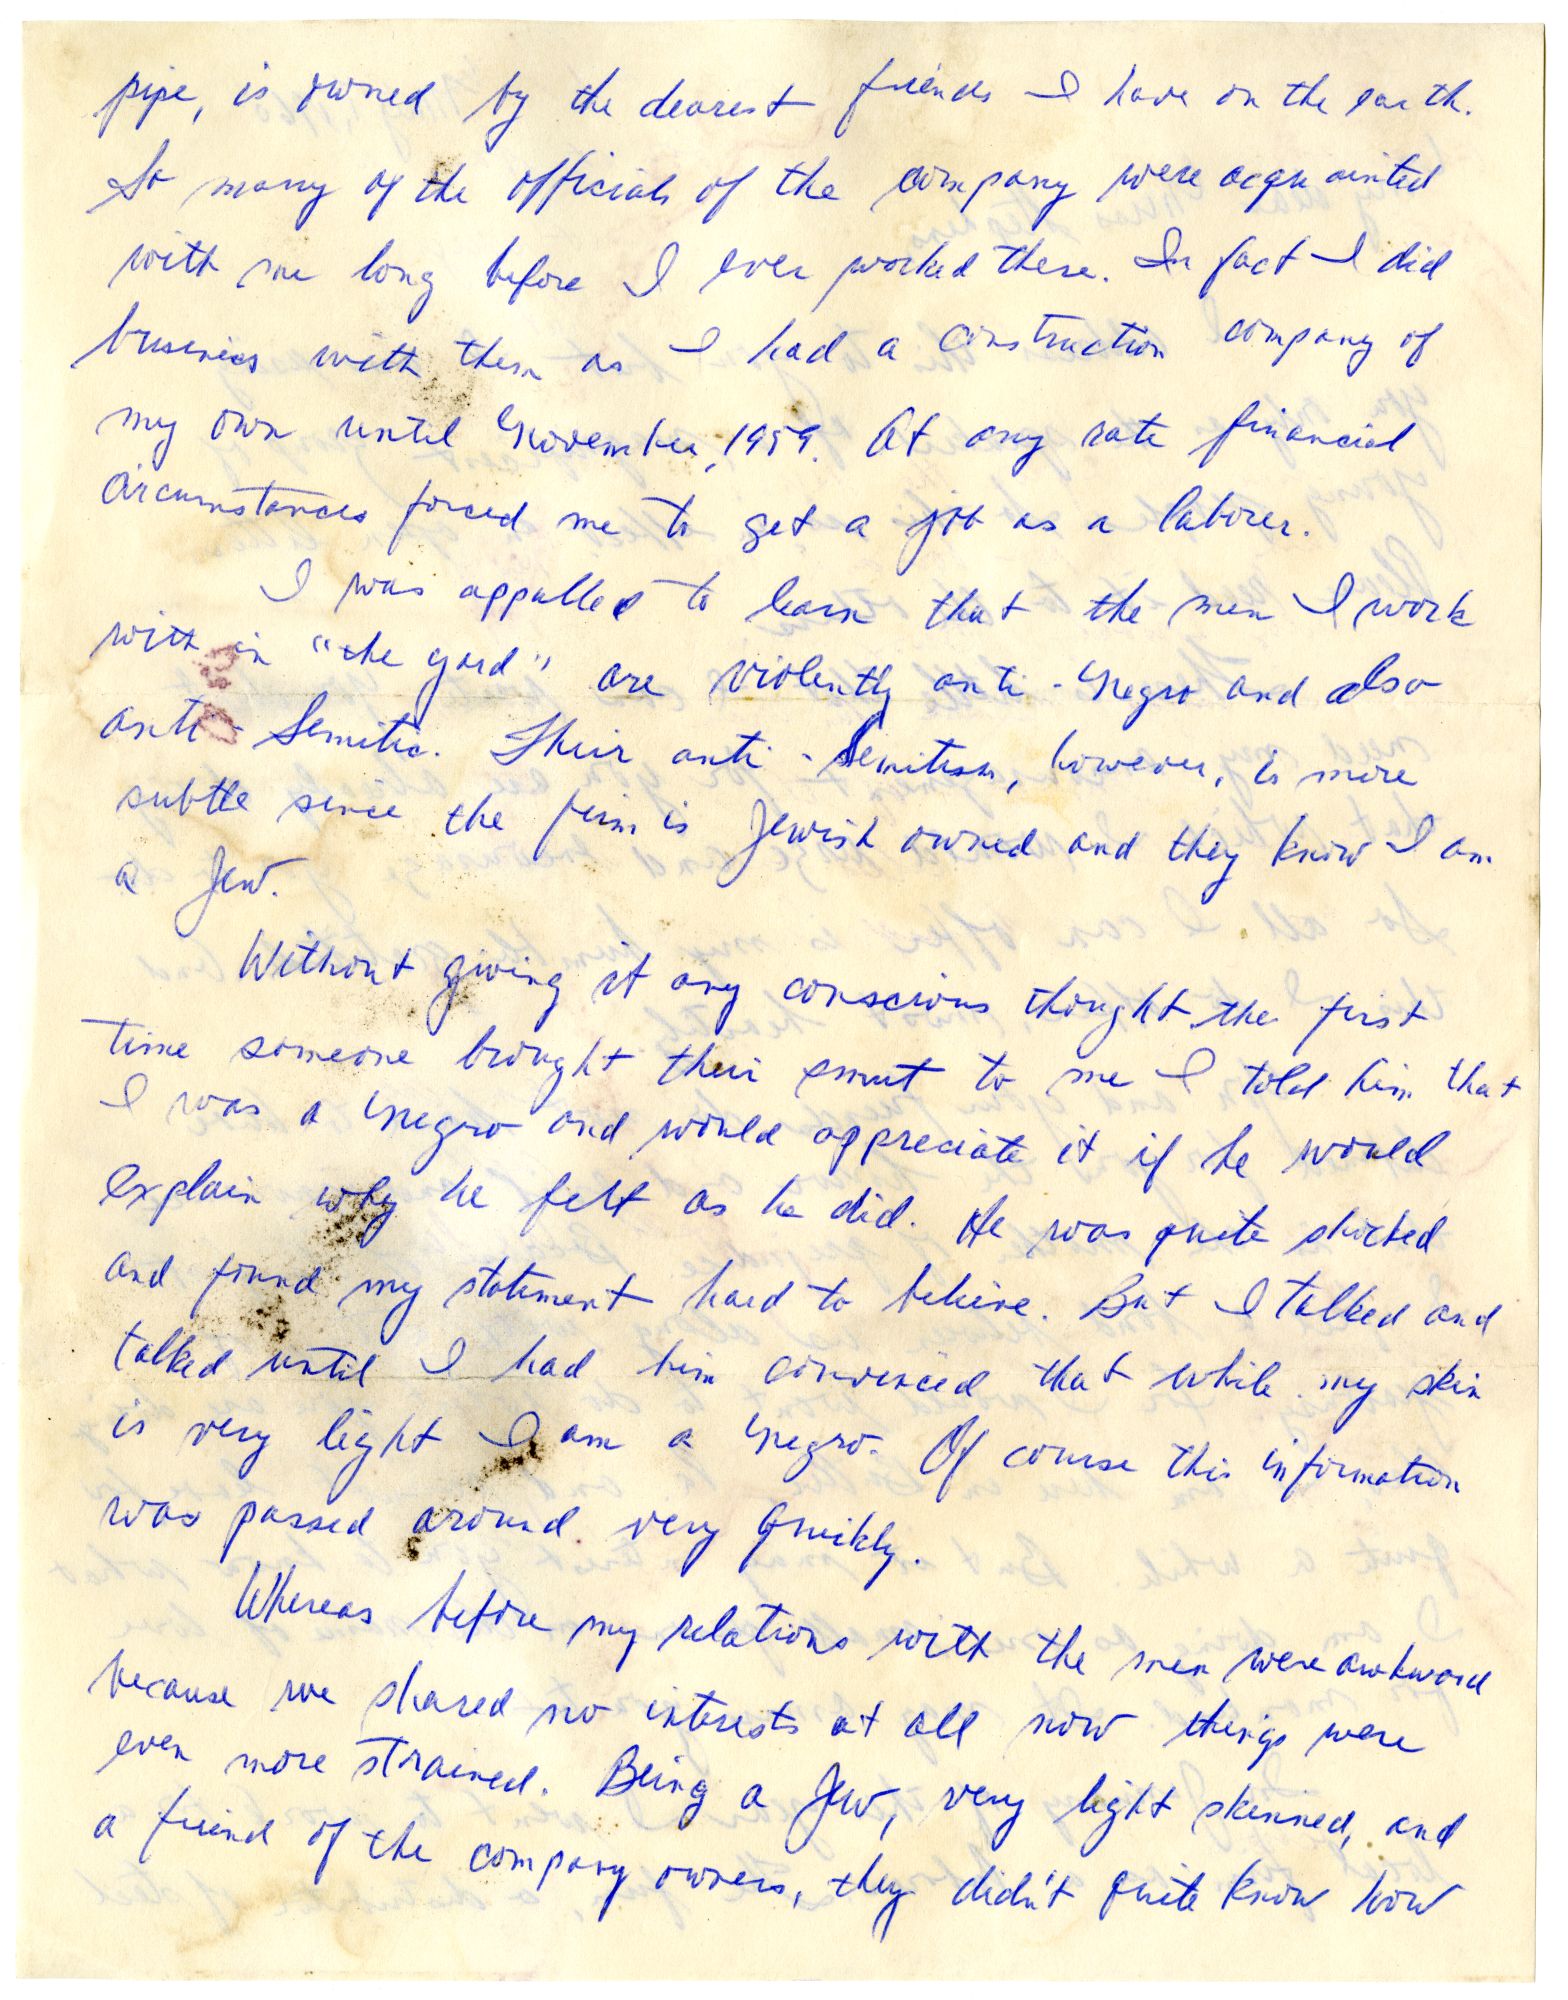 pipe, is owned by the dearest friends I have on the earth.
So many of the officials of the company were acquainted
with me long before I ever worked there. In fact I did
business with them as I had a construction company of
my own until November, 1959. At any rate financial
circumstances forced me to get a job as a laborer.
I was appalled to learn that the men I work
with in "the yard" are violently anti-Negro and also
anti-Semitic. Their anti-Semitism, however, is more
subtle since the firm is Jewish owned and they know I am
a Jew.
Without giving it any conscious thought the first
time someone brought their smut to me I told him that
I was a Negro and would appreciate it if he would
explain why he felt as he did. He was quite shocked
and found my statement hard to believe. But I talked and
talked until I had him convinced that while my skin
is very light I am a Negro. Of course this information
was passed around very quickly.
Whereas before my relations with the men were awkward
because we shared no interests at all now things were
even more strained. Being a Jew, very light skinned, and
a friend of the company owners, they didn't quite know how